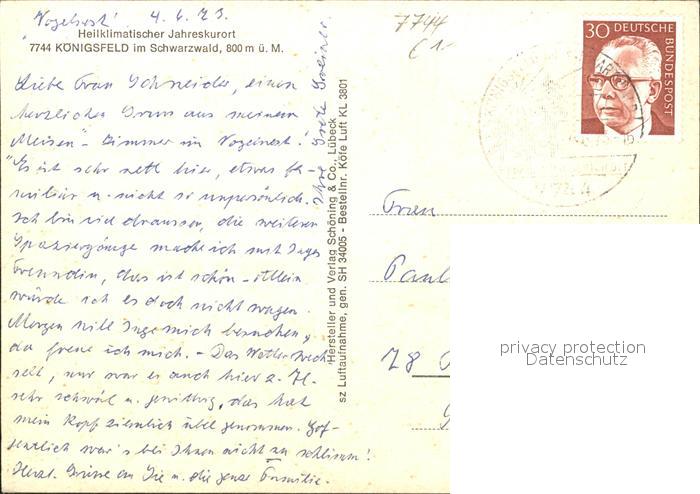 "Vogelnest". 4.6.73.
Heilklimatischer Jahreskurort
7744 KÖNIGSFELD im Schwarzwald, 800 m ü. M.
Liebe Frau Schneider, einen
herzlichen Gruss aus meinem
Meisen-Zimmer im Vogelnest!
Es ist sehr nett hier, etwas fa-
miliär u. nicht so unpersönlich.
Ich bin viel draussen, die weiteren
Spaziergänge mache ich mit Inges
Freundin, das ist schön - allein
würde ich es doch nicht wagen.
Morgen will Inge mich besuchen,
da freue ich mich. - Das Wetter wech-
selt, nur war es auch hier z. Tl.
sehr schwül u. gewittrig, das hat
mein Kopf ziemlich übel genommen. Hof-
fentlich war's bei Ihnen nicht so schlimm!
Herzl. Grüsse an Sie u. die ganze Familie.
Ihre Grete
Hersteller und Verlag Schöning & Co., Lübeck
sz Luftaufnahme, gen. SH 34005 - Bestellnr. Köfe Luft KL 3801
7744
30 DEUTSCHE
BUNDESPOST
Frau
Paul
78
privacy protection
Datenschutz